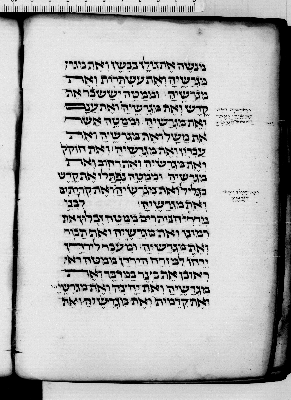 מנשה את גולן בבשן ואת מגרׄ
מגרשיה ואת עשתרות ואת
מגרשיה וממטה יששכר את
קדש ואת מגרשיה ואת
ואת מגרשיה וממטה אשר
את משל ואת מגרשיה ואת
עבדון ואת מגרשיה ואת חוקק
ואת מגרשיה ואת רחוב ואת
מגרשיה וממטה נפתלי את קדש
בגליל ואת מגרשיה ואת קריתים
ואת מגרשיה לבני
מררי הנותרים ממטה זבולן את
רמונו ואת מגרשיה את תבור
ואת מגרשיה ומעבר לירדן
ירחו למזרח הירדן ממטה ראו
ראובן את בצר במדבר ואת
מגרשיה ואת יהצה ואת מגרשיה
ואת קדמות ואת מגרשיה ואת